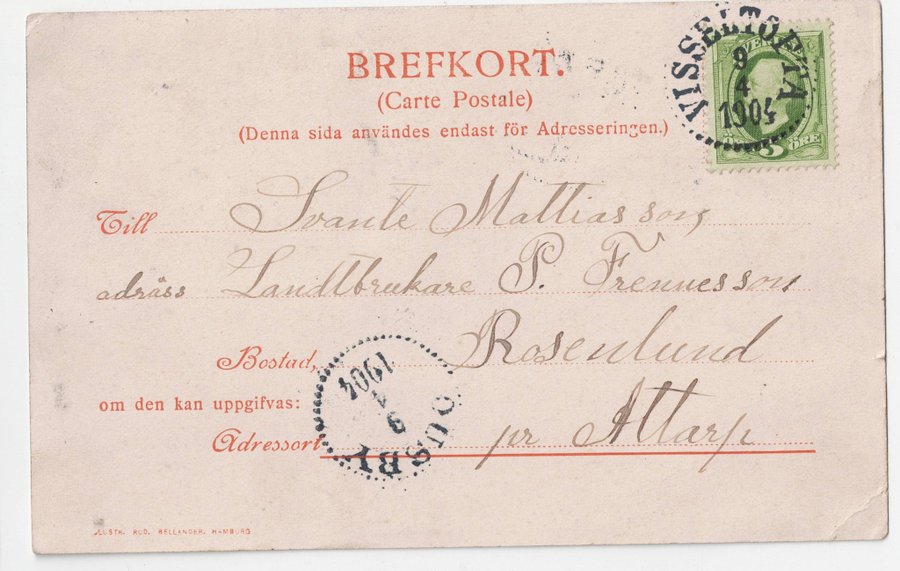 BREFKORT.
(Carte Postale)
(Denna sida användes endast för Adresseringen.)
VISSELTOFTA
9
4
1904
SVERIGE
5
ÖRE
Till Svante Mattiasson,
adräss Landtbrukare P. Frennesson
Bostad, Rosenlund
om den kan uppgifvas:
Adressort pr Attarp
1904
4
9
OUSBY
ILLUSTR. RUD. BELLANDER, HAMBURG